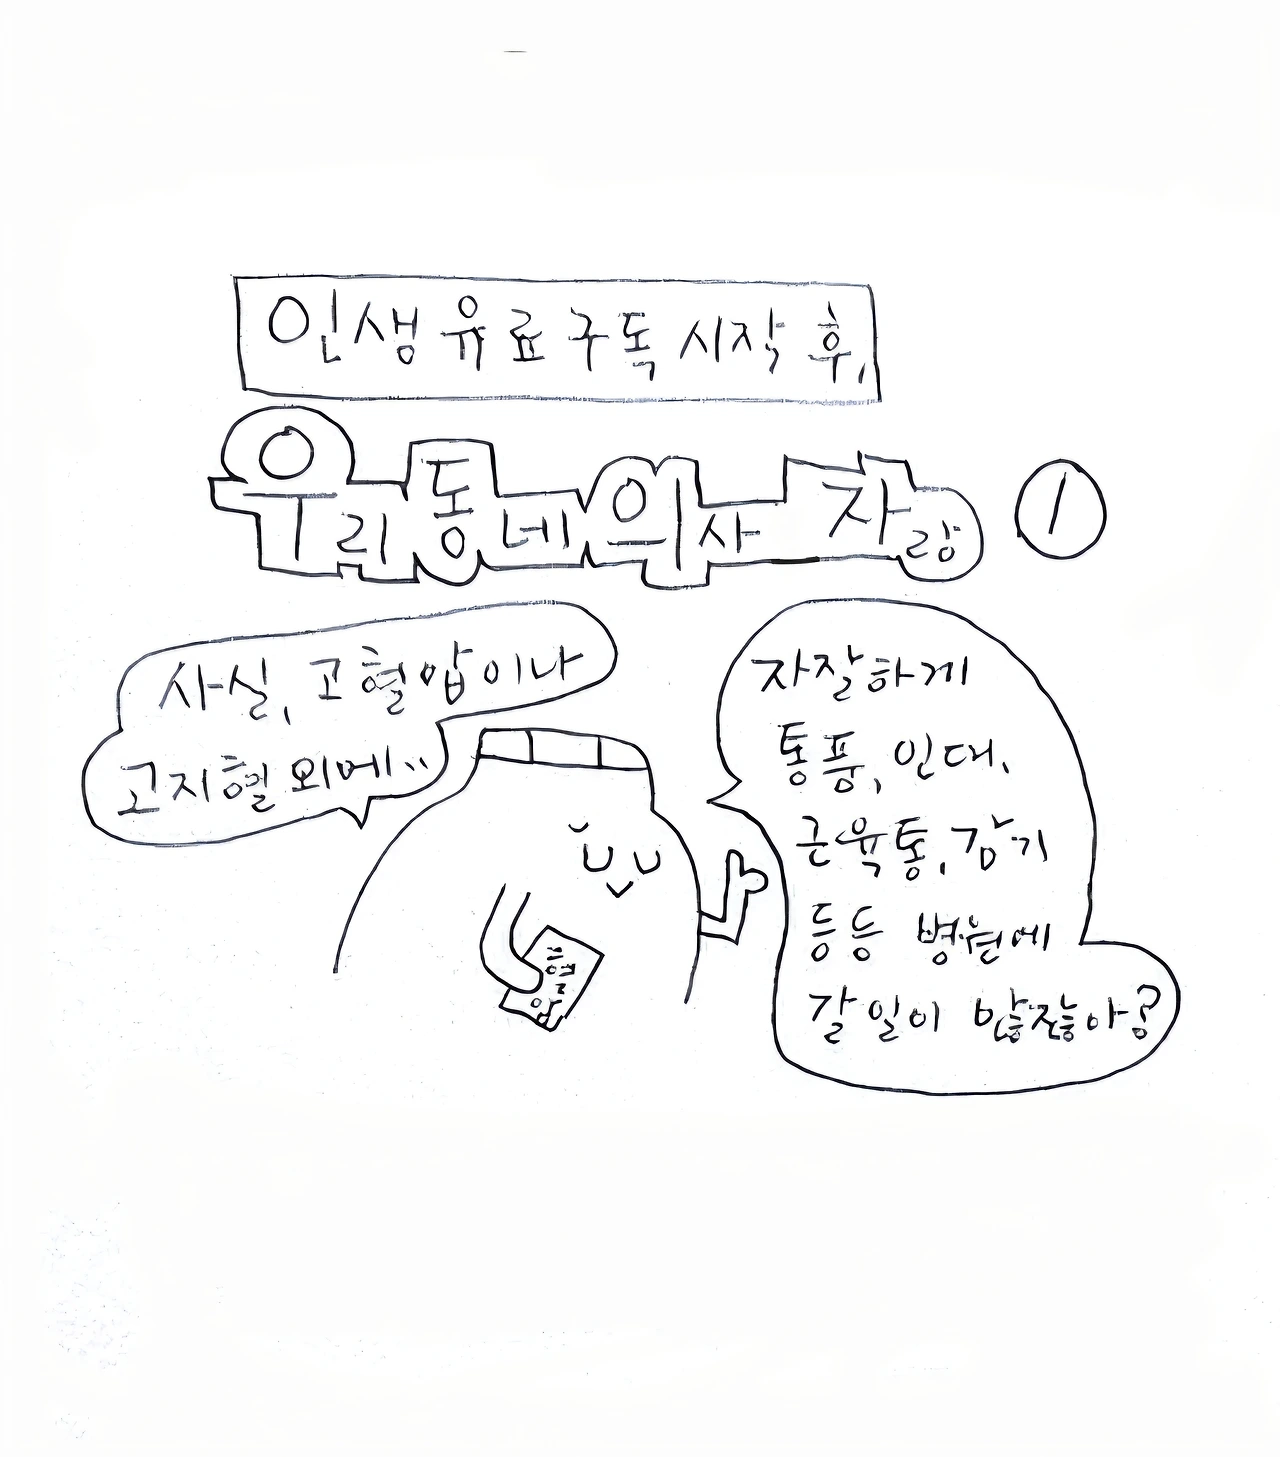 인생 유료구독 시작 후,
우리동네의사 자랑
1
사실, 고혈압이나
고지혈 외에..
자잘하게
통풍, 인대,
근육통, 감기
등등 병원에
갈 일이 많잖아?